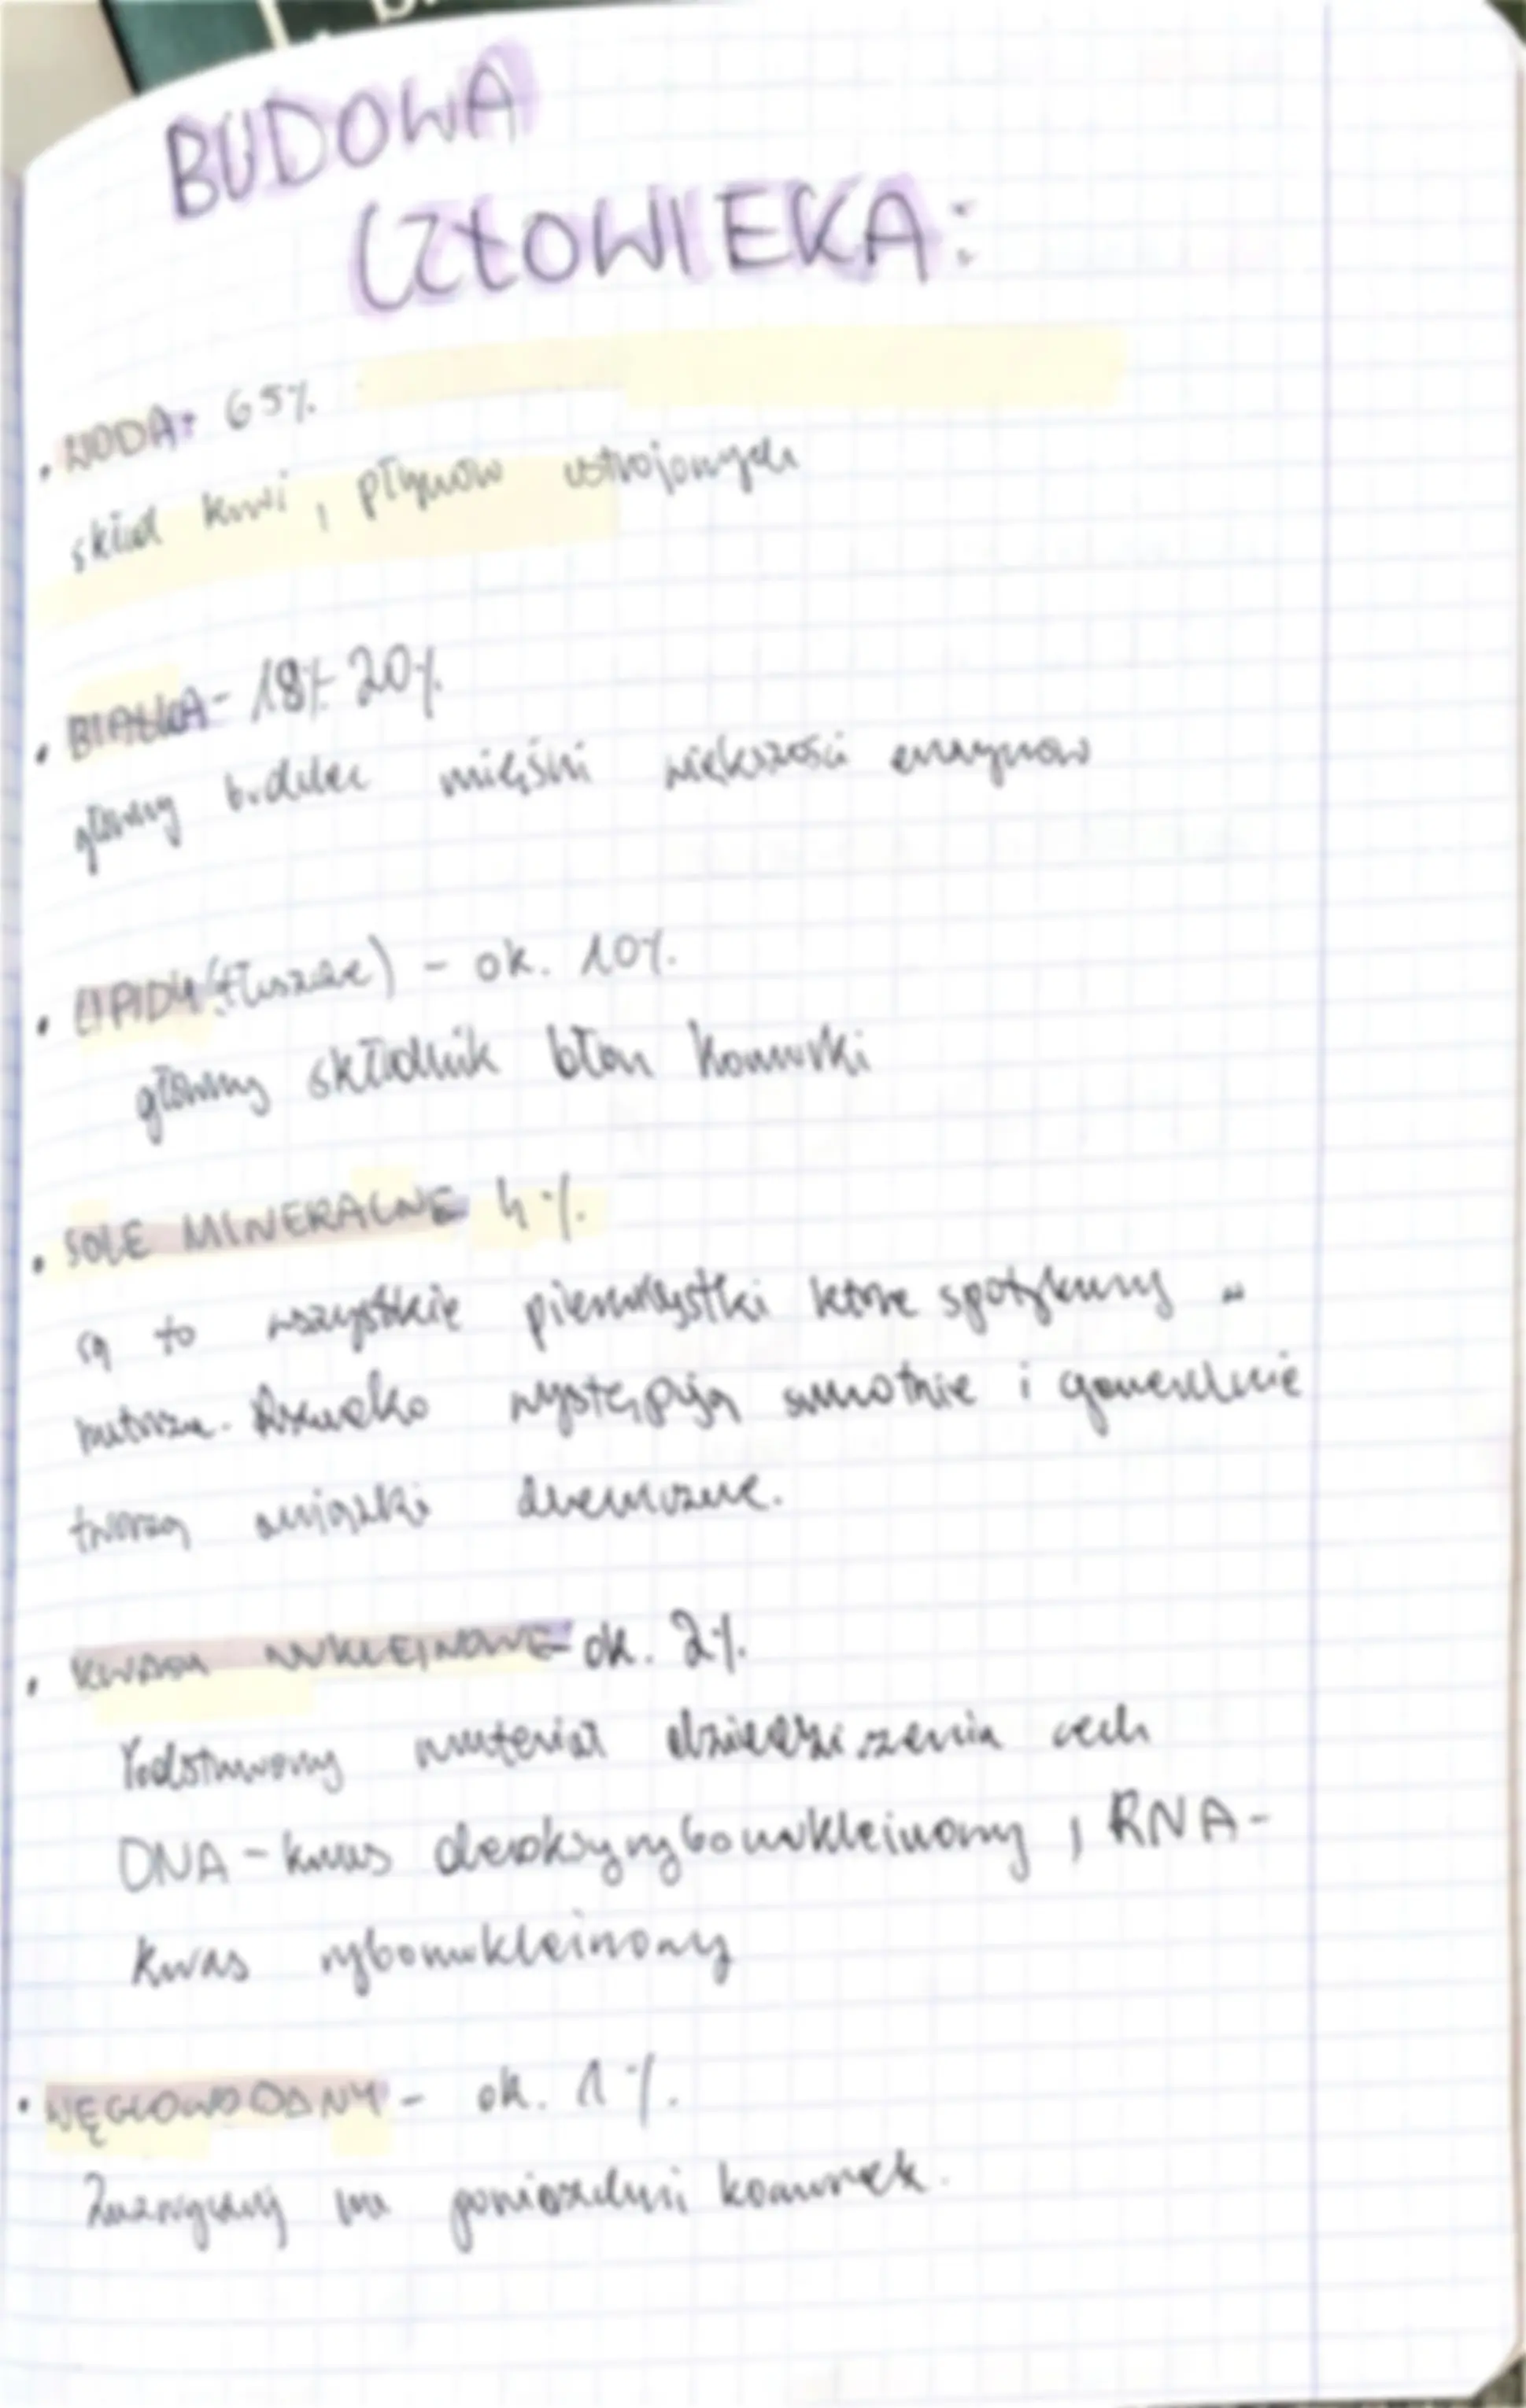 BUDOWA
CZŁOWIEKA:
• WODA 65%
skład krwi, płynów ustrojowych
• BIAŁKA - 18% 20%
główny budulec mięśni większości enzymów
• LIPIDY (tłuszcze) - ok. 10%
główny składnik błon komórki
• SOLE MINERALNE 4%
są to wszystkie pierwiastki które spotykamy w
naturze. Rzadko występują samotnie i generalnie
tworzą związki chemiczne.
• KWASY NUKLEINOWE ok. 2%
Podstawowy materiał dziedziczenia cech
DNA - kwas deoksyrybonukleinowy, RNA -
kwas rybonukleinowy
• WĘGLOWODANY - ok. 1%
na powierzchni komórek.